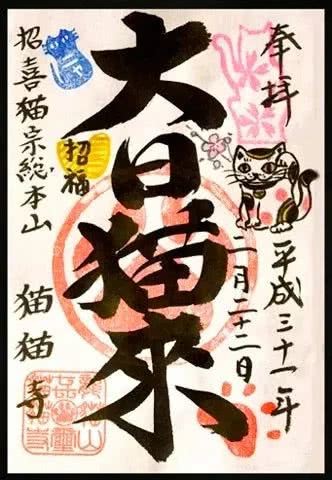 奉拝
平成三十一年
二月二十二日
大日猫來
招福
招喜猫宗総本山
猫猫寺